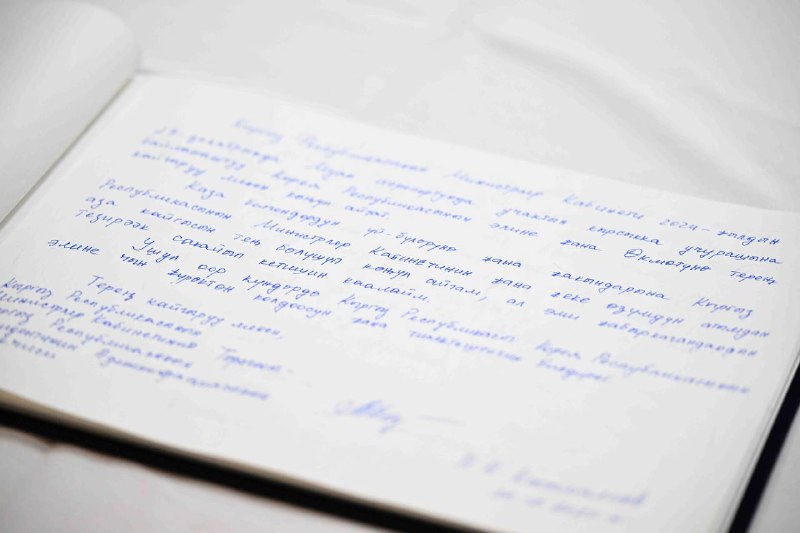 Кыргыз Республикасынын Министрлер Кабинети 2024-жылдын
29-декабрында Муан аэропортунда учактын кырсыкка учурашына
байланыштуу Корея Республикасынын элине жана Өкмөтүнө терең
кайгыруу менен көңүл айтат.
Каза болгондордун үй-бүлөсүнө жана жакындарына Кыргыз
Республикасынын Министрлер Кабинетинин жана жеке өзүмдүн атымдан
аза кайгысын тең бөлүшүп көңүл айтам, ал эми жабыркагандардан
тезирээк сакайып кетишин каалайм.
Ушул оор күндөрдө Кыргыз Республикасы Корея Республикасынын
элине чын жүрөктөн колдоосун жана тилектештигин билдирет
Терең кайгыруу менен,
Кыргыз Республикасынын
Министрлер Кабинетинин Төрагасы-
Кыргыз Республикасынын